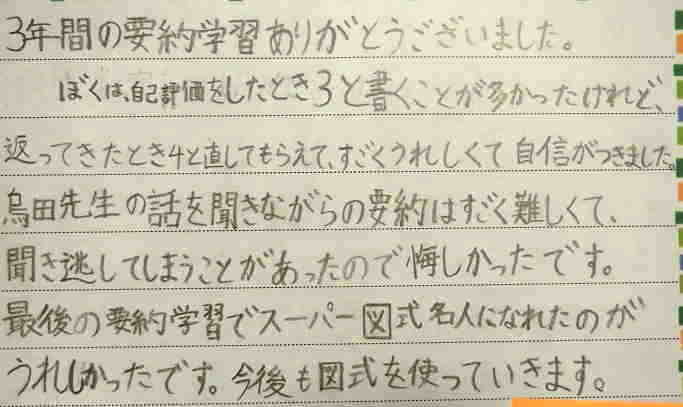 3年間の要約学習ありがとうございました。
ぼくは、自己評価をしたとき3と書くことが多かったけれど、
返ってきたとき4と直してもらえて、すごくうれしくて自信がつきました。
烏田先生の話を聞きながらの要約はすごく難しくて、
聞き逃してしまうことがあったので悔しかったです。
最後の要約学習でスーパー図式名人になれたのが
うれしかったです。今後も図式を使っていきます。